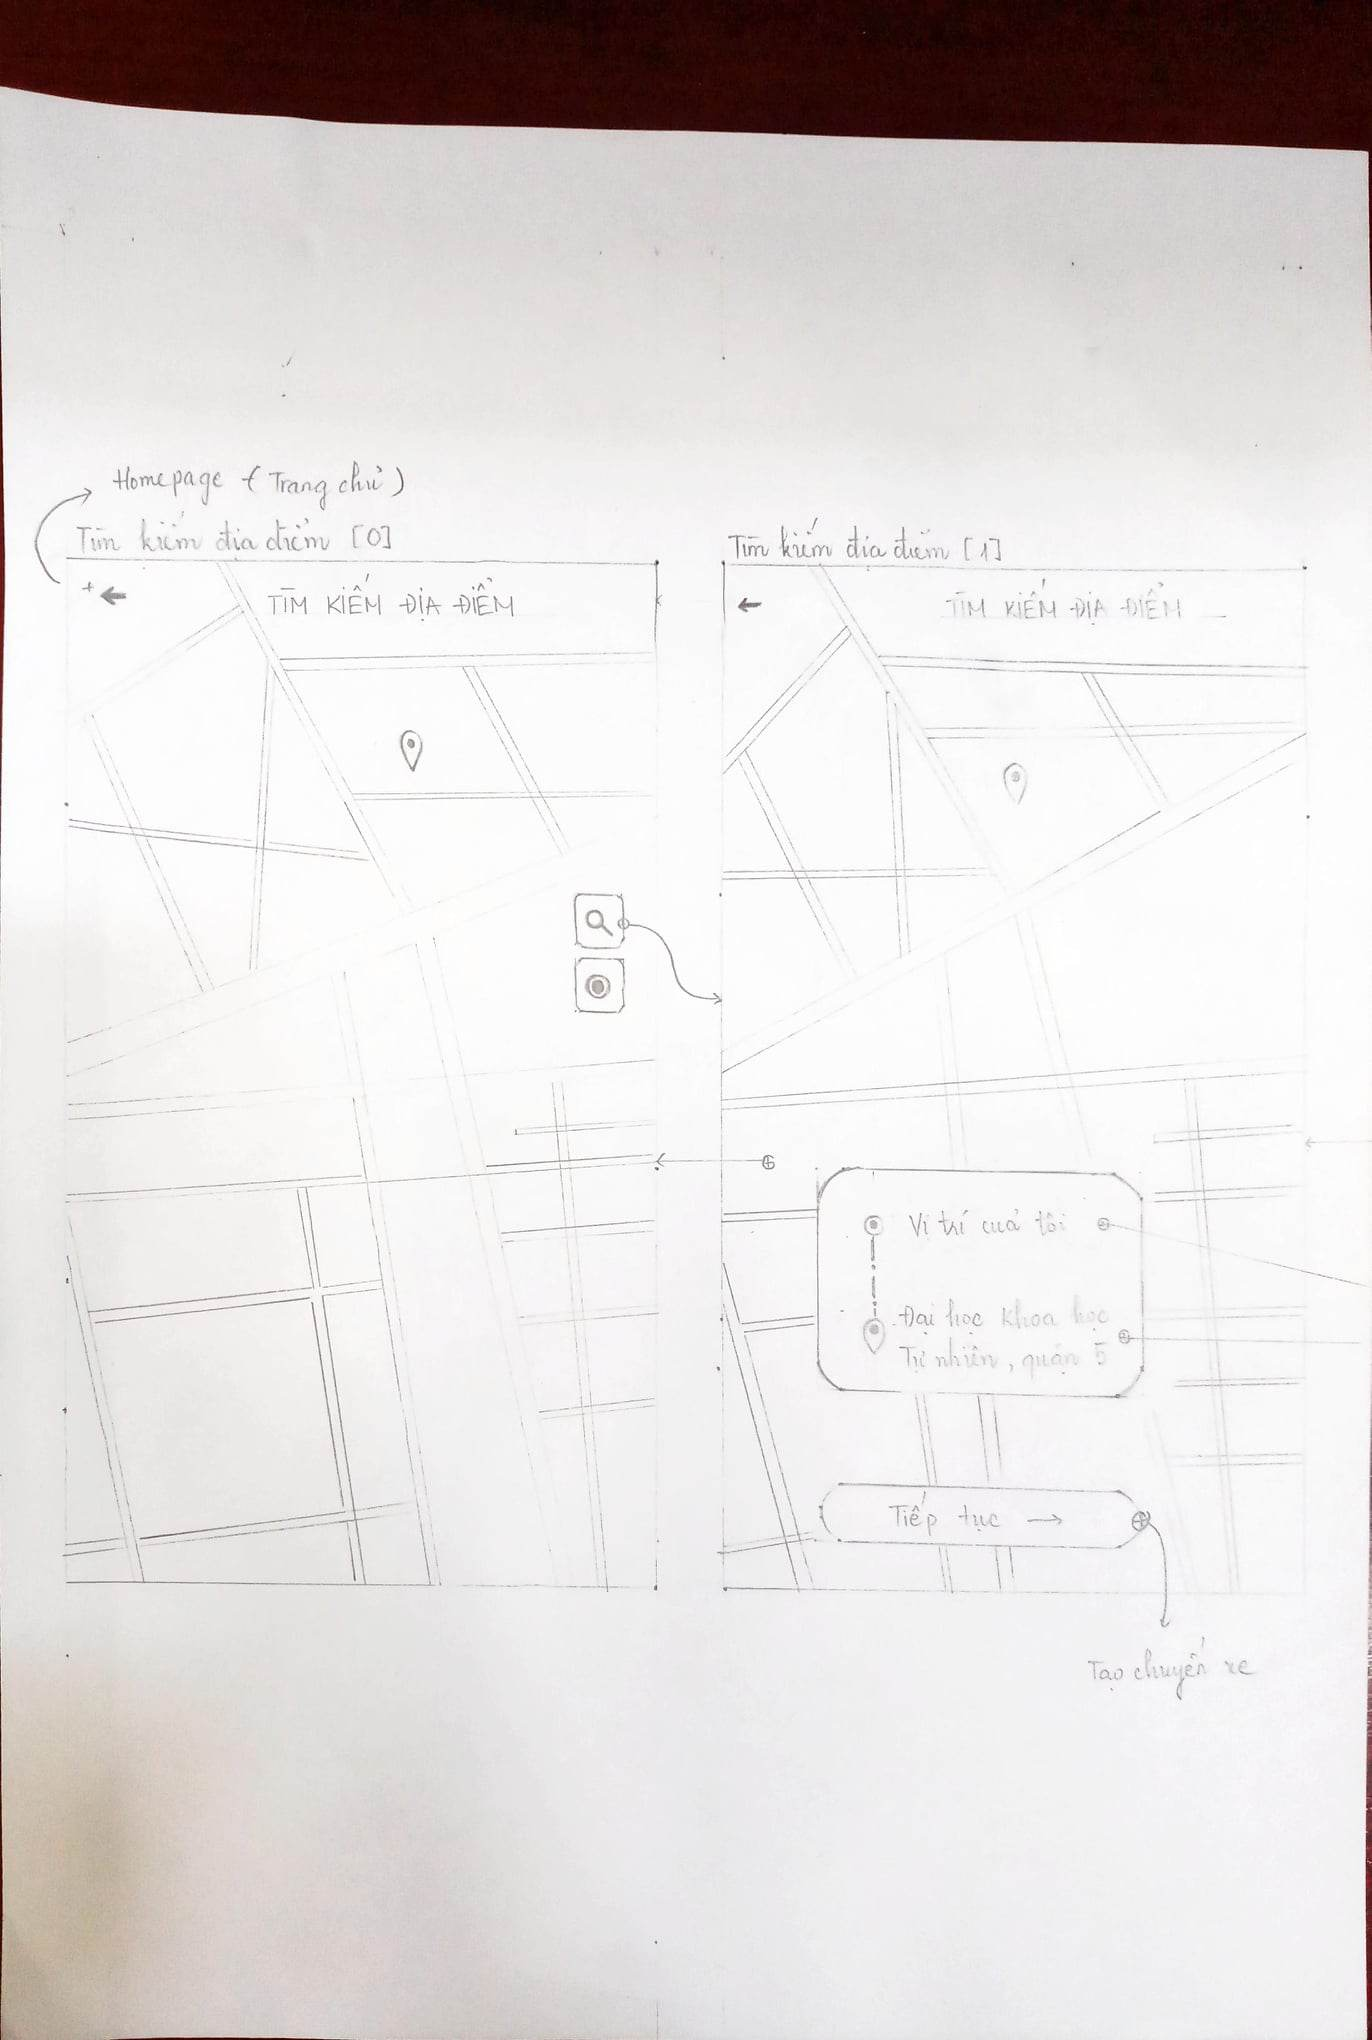 Homepage (Trang chủ)
Tìm kiếm địa điểm [0]
TÌM KIẾM ĐỊA ĐIỂM
Tìm kiếm địa điểm [1]
TÌM KIẾM ĐỊA ĐIỂM
Vị trí của tôi
Đại học Khoa học
Tự nhiên, quận 5
Tiếp tục →
Tạo chuyến xe